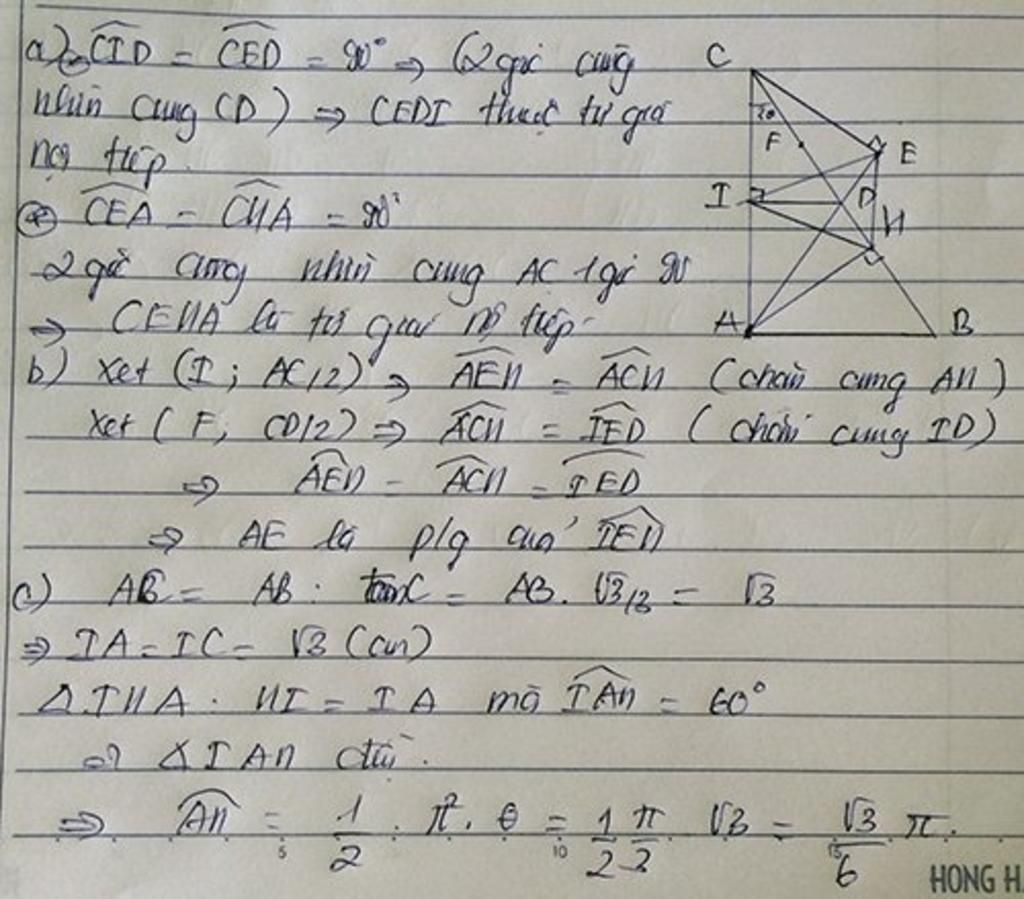 a) CID = CED = 90° ⇒ (2 góc cùng
nhìn cung CD) ⇒ CEDI thuộc tứ giác
nội tiếp.
CEA = CHA = 90°
2 góc cùng nhìn cung AC 1 góc 90
⇒ CEHA là tứ giác nội tiếp.
b) Xét (I; AC/2) ⇒ AEH = ACH (chắn cung AH)
Xét (F; CD/2) ⇒ ACH = IED (chắn cung ID)
⇒ AEH = ACH = IED
⇒ AE là p/g của IEH
c) AC = AB. tanC = AB. √3/3 = √3
⇒ IA = IC = √3 (cm)
Δ IHA: HI = IA mà IAH = 60°
⇒ Δ IAH đều.
⇒ AH = 1/2 . π². θ = 1/2 π/3 √3 = √3/6 π.
C
30
F
E
I
D
H
A
B
5
10
15
HONG H